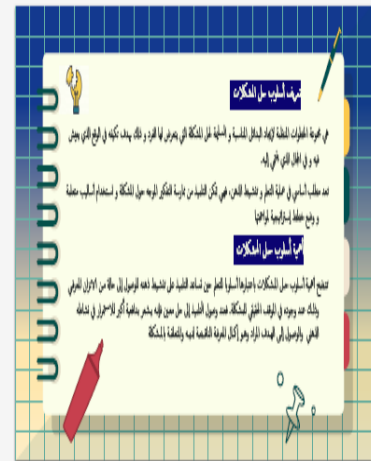 تعريف أسلوب حل المشكلات
هي مجموعة الخطوات المنظمة لإيجاد البدائل المناسبة و السليمة لحل المشكلة التي يتعرض لها الفرد و ذلك بهدف تكيفه في الواقع الذي يعيش
فيه و في المجال الذي ينتمي إليه.
تعد مطلب أساسي في عملية التعلم و تنشيط الذهن، فهي تمكن التلميذ من ممارسة التفكير الموجه حول المشكلة و استخدام أساليب منطقية
و وضع خطط إستراتيجية لمواجهتها
أهمية أسلوب حل المشكلات
تتضح أهمية أسلوب حل المشكلات باعتبارها أسلوبا للتعلم حين تساعد التلميذ على تنشيط ذهنه للوصول إلى حالة من الاتزان المعرفي
وذلك عند وجوده في الموقف الحقيقي للمشكلة، فعند وصول التلميذ إلى حل معين فإنه يشعر بدافعية أكبر للاستمرار في نشاطه
الذهني والوصول إلى الهدف المراد وهو إكمال المعرفة الناقصة لديه والمتعلقة بالمشكلة